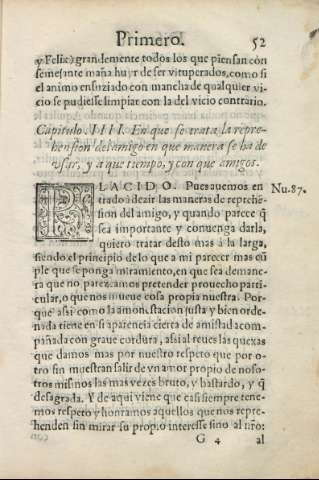 Primero. 52
y Felix) grandemente todos los que piensan con
semejante maña huyr de ser vituperados, como si
el animo ensuziado con mancha de qualquier vi-
cio se pudiesse limpiar con la del vicio contrario.
Capitulo. IIII. En que se trata la repre-
hension del amigo en que manera se ha de
vsar, y a que tiempo, y con que amigos.
PLACIDO. Pues auemos en Nu. 87.
trado à dezir las maneras de reprehē
sion del amigo, y quando parece q̃
sea importante y conuenga darla,
quiero tratar desto mas à la larga,
siendo el principio de lo que a mi parecer mas cū
ple que se ponga miramiento, en que sea demane-
ra que no parezcamos pretender prouecho parti-
cular, o que nos mueue cosa propia nuestra. Por-
que assi como la amonestacion justa y bien orde-
nada tiene en si aparencia cierta de amistad acom-
pañada con graue cordura, assi al reues las quexas
que damos mas por nuestro respeto que por o-
tro fin muestran salir de vn amor propio de noso-
tros mismos las mas vezes bruto, y bastardo, y q̃
desagrada. Y de aqui viene que casi siempre tene-
mos respeto y honramos aquellos que nos repre-
henden sin mirar su propio interesse sino al nro:
G 4 al